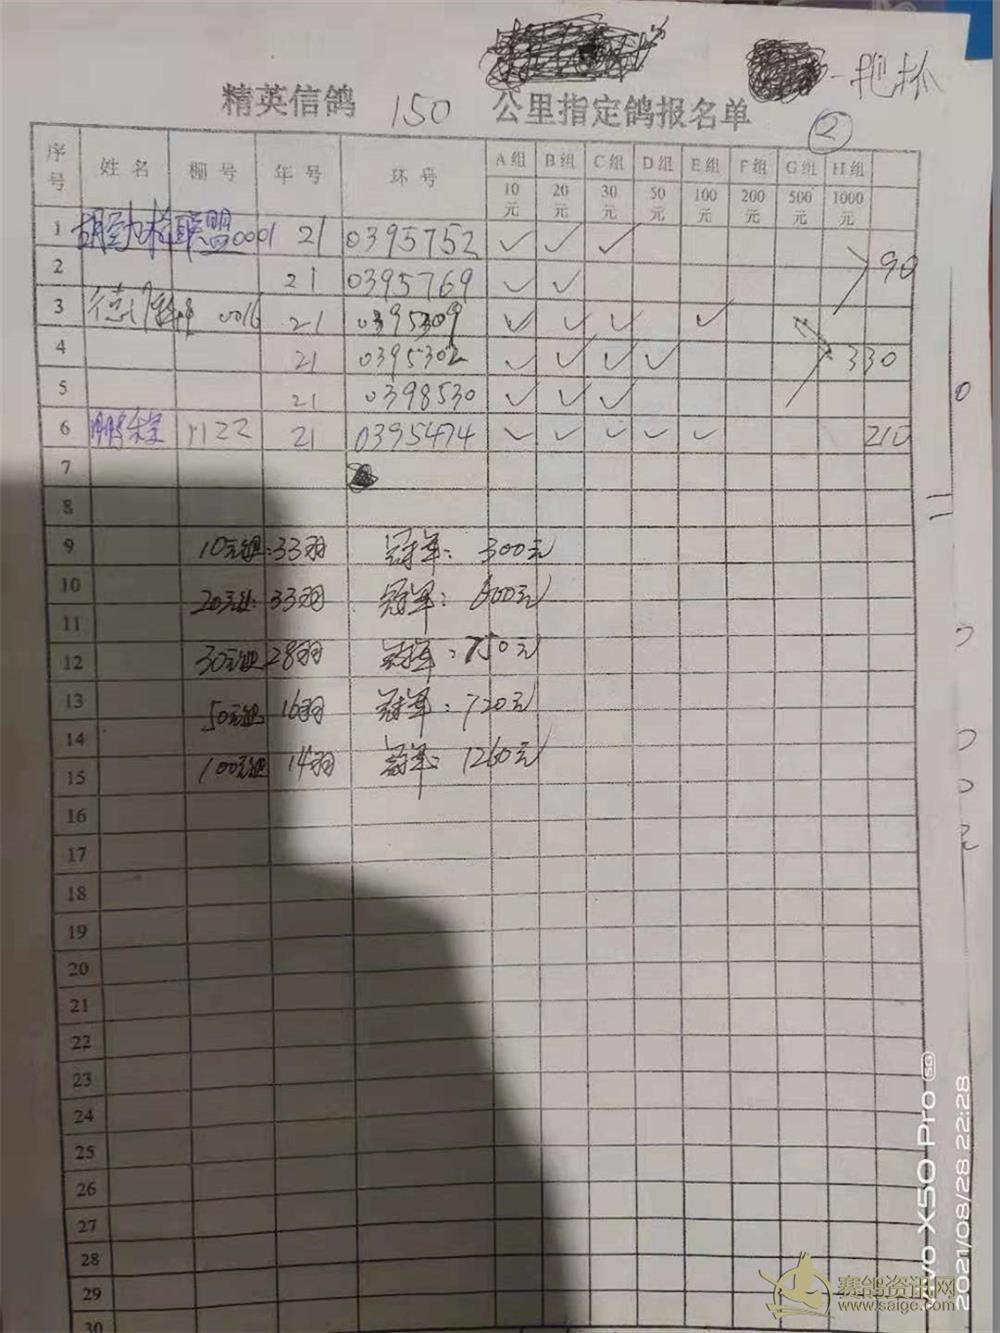 一把抓
精英信鸽 150 公里指定鸽报名单 ②
序号 姓名 棚号 年号 环号 A组 B组 C组 D组 E组 F组 G组 H组
10元 20元 30元 50元 100元 200元 500元 1000元
1 联盟0001 21 0395752 ✓ ✓ ✓
2 21 0395769 ✓ ✓ 90
3 0016 21 0395309 ✓ ✓ ✓ ✓
4 21 0395302 ✓ ✓ ✓ ✓ 330
5 21 0398530 ✓ ✓ ✓
6 鹏程 1122 21 0395474 ✓ ✓ ✓ ✓ ✓ 210
7
8
9 10元组:33羽 冠军:300元
10 20元组:33羽 冠军:600元
11
12 30元组 28羽 冠军:750元
13 50元组 16羽 冠军:720元
14
15 100元组 14羽 冠军:1260元
16
17
18
19
20
21
22
23
24
25
26
27
28
29
30
vivo X50 Pro 5G
2021/08/28 22:28
赛鸽资讯网
www.saige.com